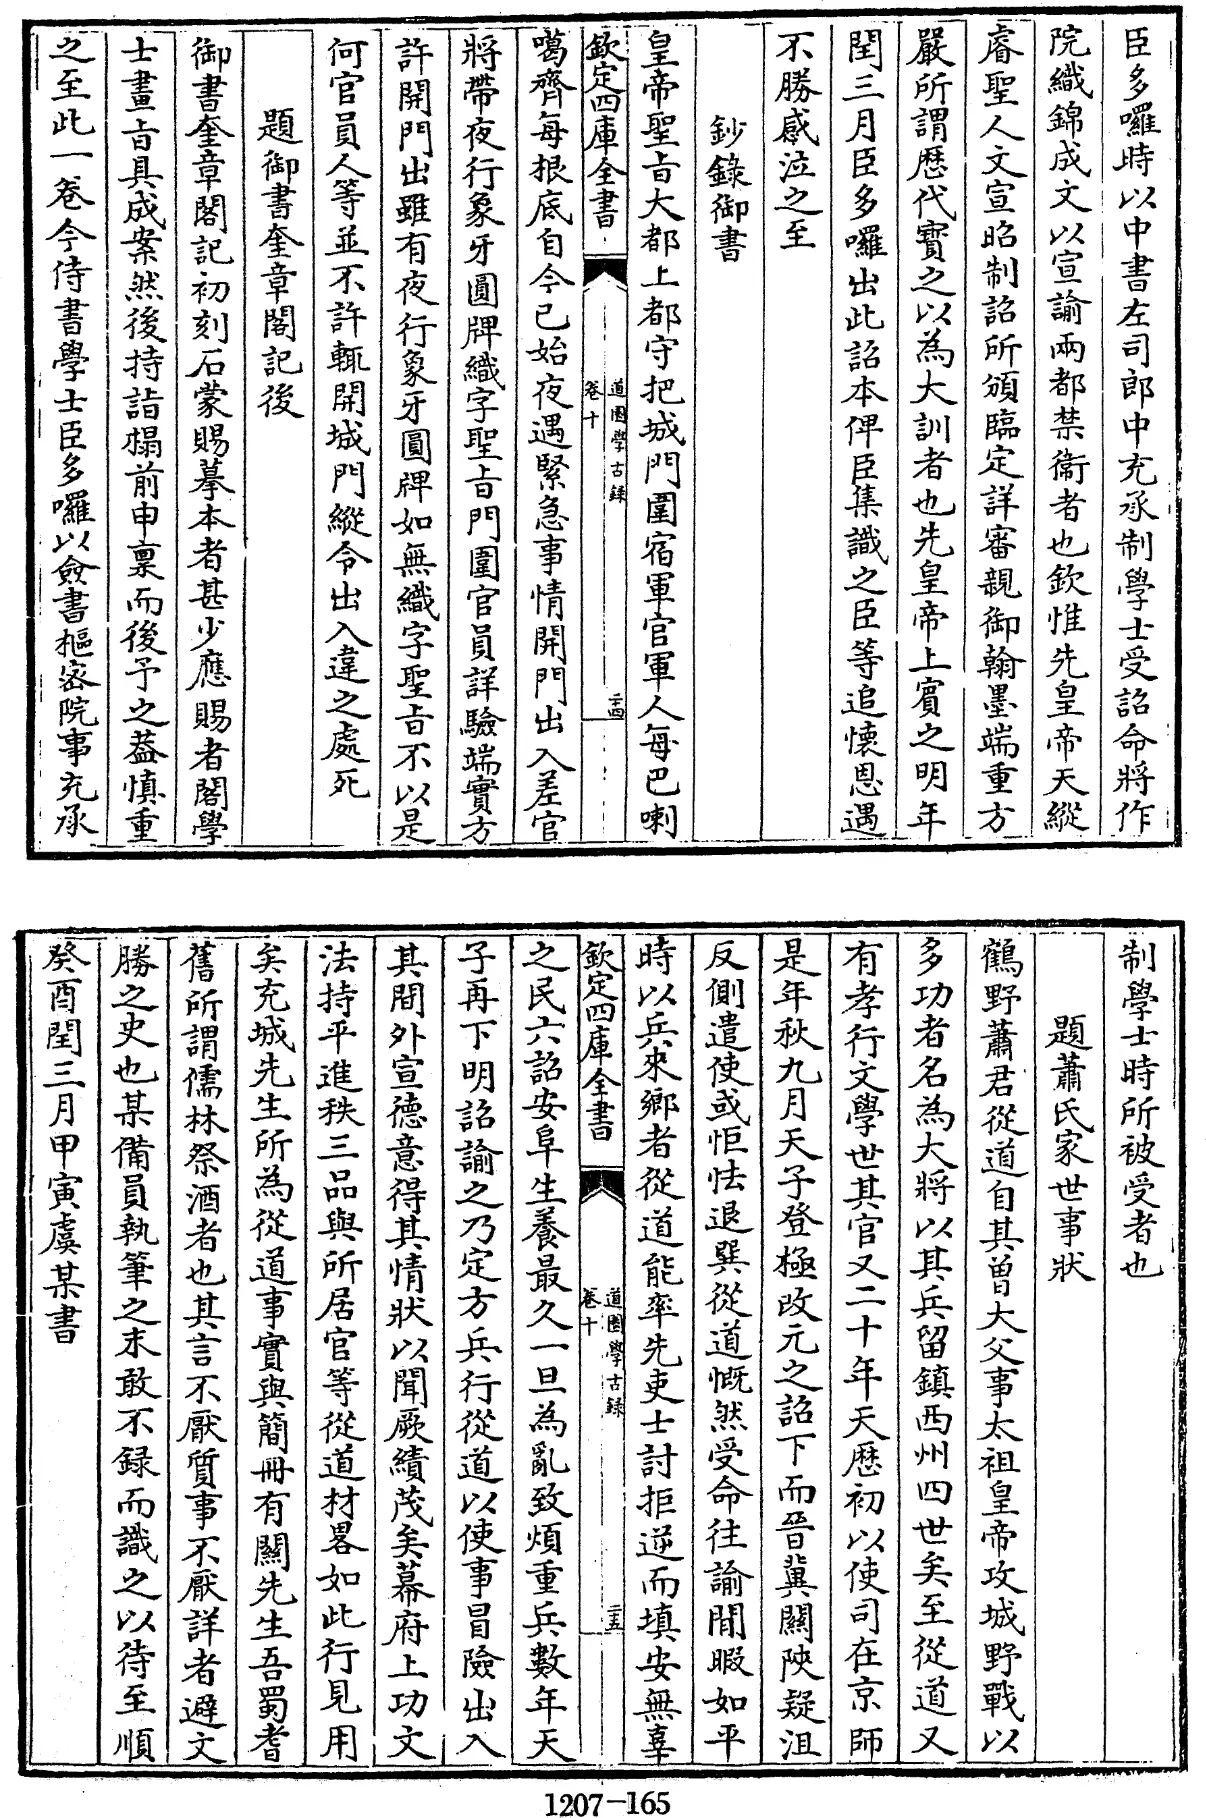 臣多囉時以中書左司郎中充承制學士受詔命將作
院織錦成文以宣諭兩都禁衞者也欽惟先皇帝天縱
睿聖人文宣昭制詔所頒臨定詳審親御翰墨端重方
嚴所謂歴代寳之以為大訓者也先皇帝上賓之明年
閏三月臣多囉出此詔本俾臣集識之臣等追懷恩遇
不勝感泣之至
鈔錄御書
皇帝聖旨大都上都守把城門圍宿軍官軍人每巴喇
噶齊每根底自今已始夜遇緊急事情開門出入差官
將帶夜行象牙圓牌織字聖旨門圍官員詳驗端實方
許開門出雖有夜行象牙圓牌如無織字聖旨不以是
何官員人等並不許輒開城門縱令出入違之處死
題御書奎章閣記後
御書奎章閣記初刻石蒙賜摹本者甚少應賜者閣學
士畫旨具成案然後持詣榻前申稟而後予之葢慎重
之至此一卷今侍書學士臣多囉以僉書樞密院事充承
欽定四庫全書
道園學古録
卷十
二十四
制學士時所被受者也
題蕭氏家世事狀
鶴野蕭君從道自其曽大父事太祖皇帝攻城野戰以
多功者名為大將以其兵留鎮西州四世矣至從道又
有孝行文學世其官又二十年天歴初以使司在京師
是年秋九月天子登極改元之詔下而晉冀關陜疑沮
反側遣使或怇怯退巽從道慨然受命往諭閒暇如平
時以兵來鄉者從道能率先吏士討拒逆而填安無辜
之民六詔安阜生養最久一旦為亂致煩重兵數年天
子再下明詔諭之乃定方兵行從道以使事冒險出入
其間外宣德意得其情狀以聞厥績茂矣幕府上功文
法持平進秩三品與所居官等從道材畧如此行見用
矣充城先生所為從道事實與簡冊有關先生吾蜀耆
舊所謂儒林祭酒者也其言不厭質事不厭詳者避文
勝之史也某備員執筆之末敢不録而識之以待至順
癸酉閏三月甲寅虞某書
欽定四庫全書
道園學古録
卷十
二十五
1207-165